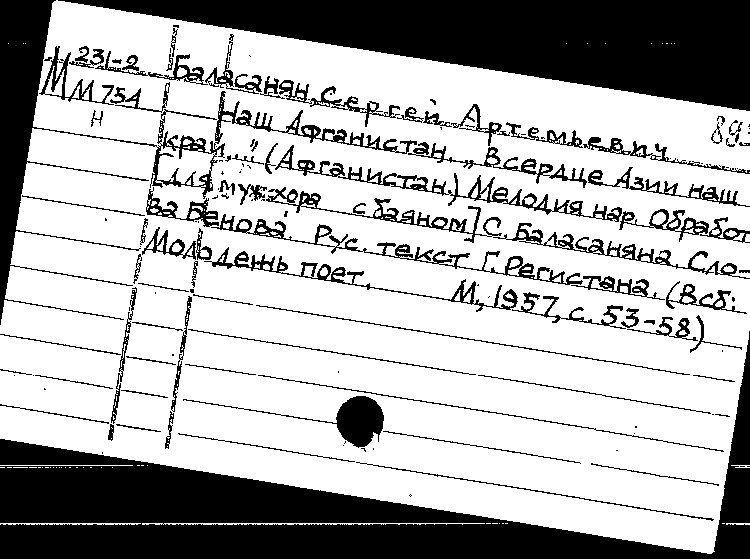 М 231-2
М М 754
Н
893
Баласанян, Сергей Артемьевич
Наш Афганистан. „В сердце Азии наш
край..." (Афганистан.) Мелодия нар. Обработ
[для муж. хора с баяном] С. Баласаняна. Сло-
ва Бенова. Рус. текст Г. Регистана. (В сб:
Молодежь поет. М., 1957, с. 53-58.)